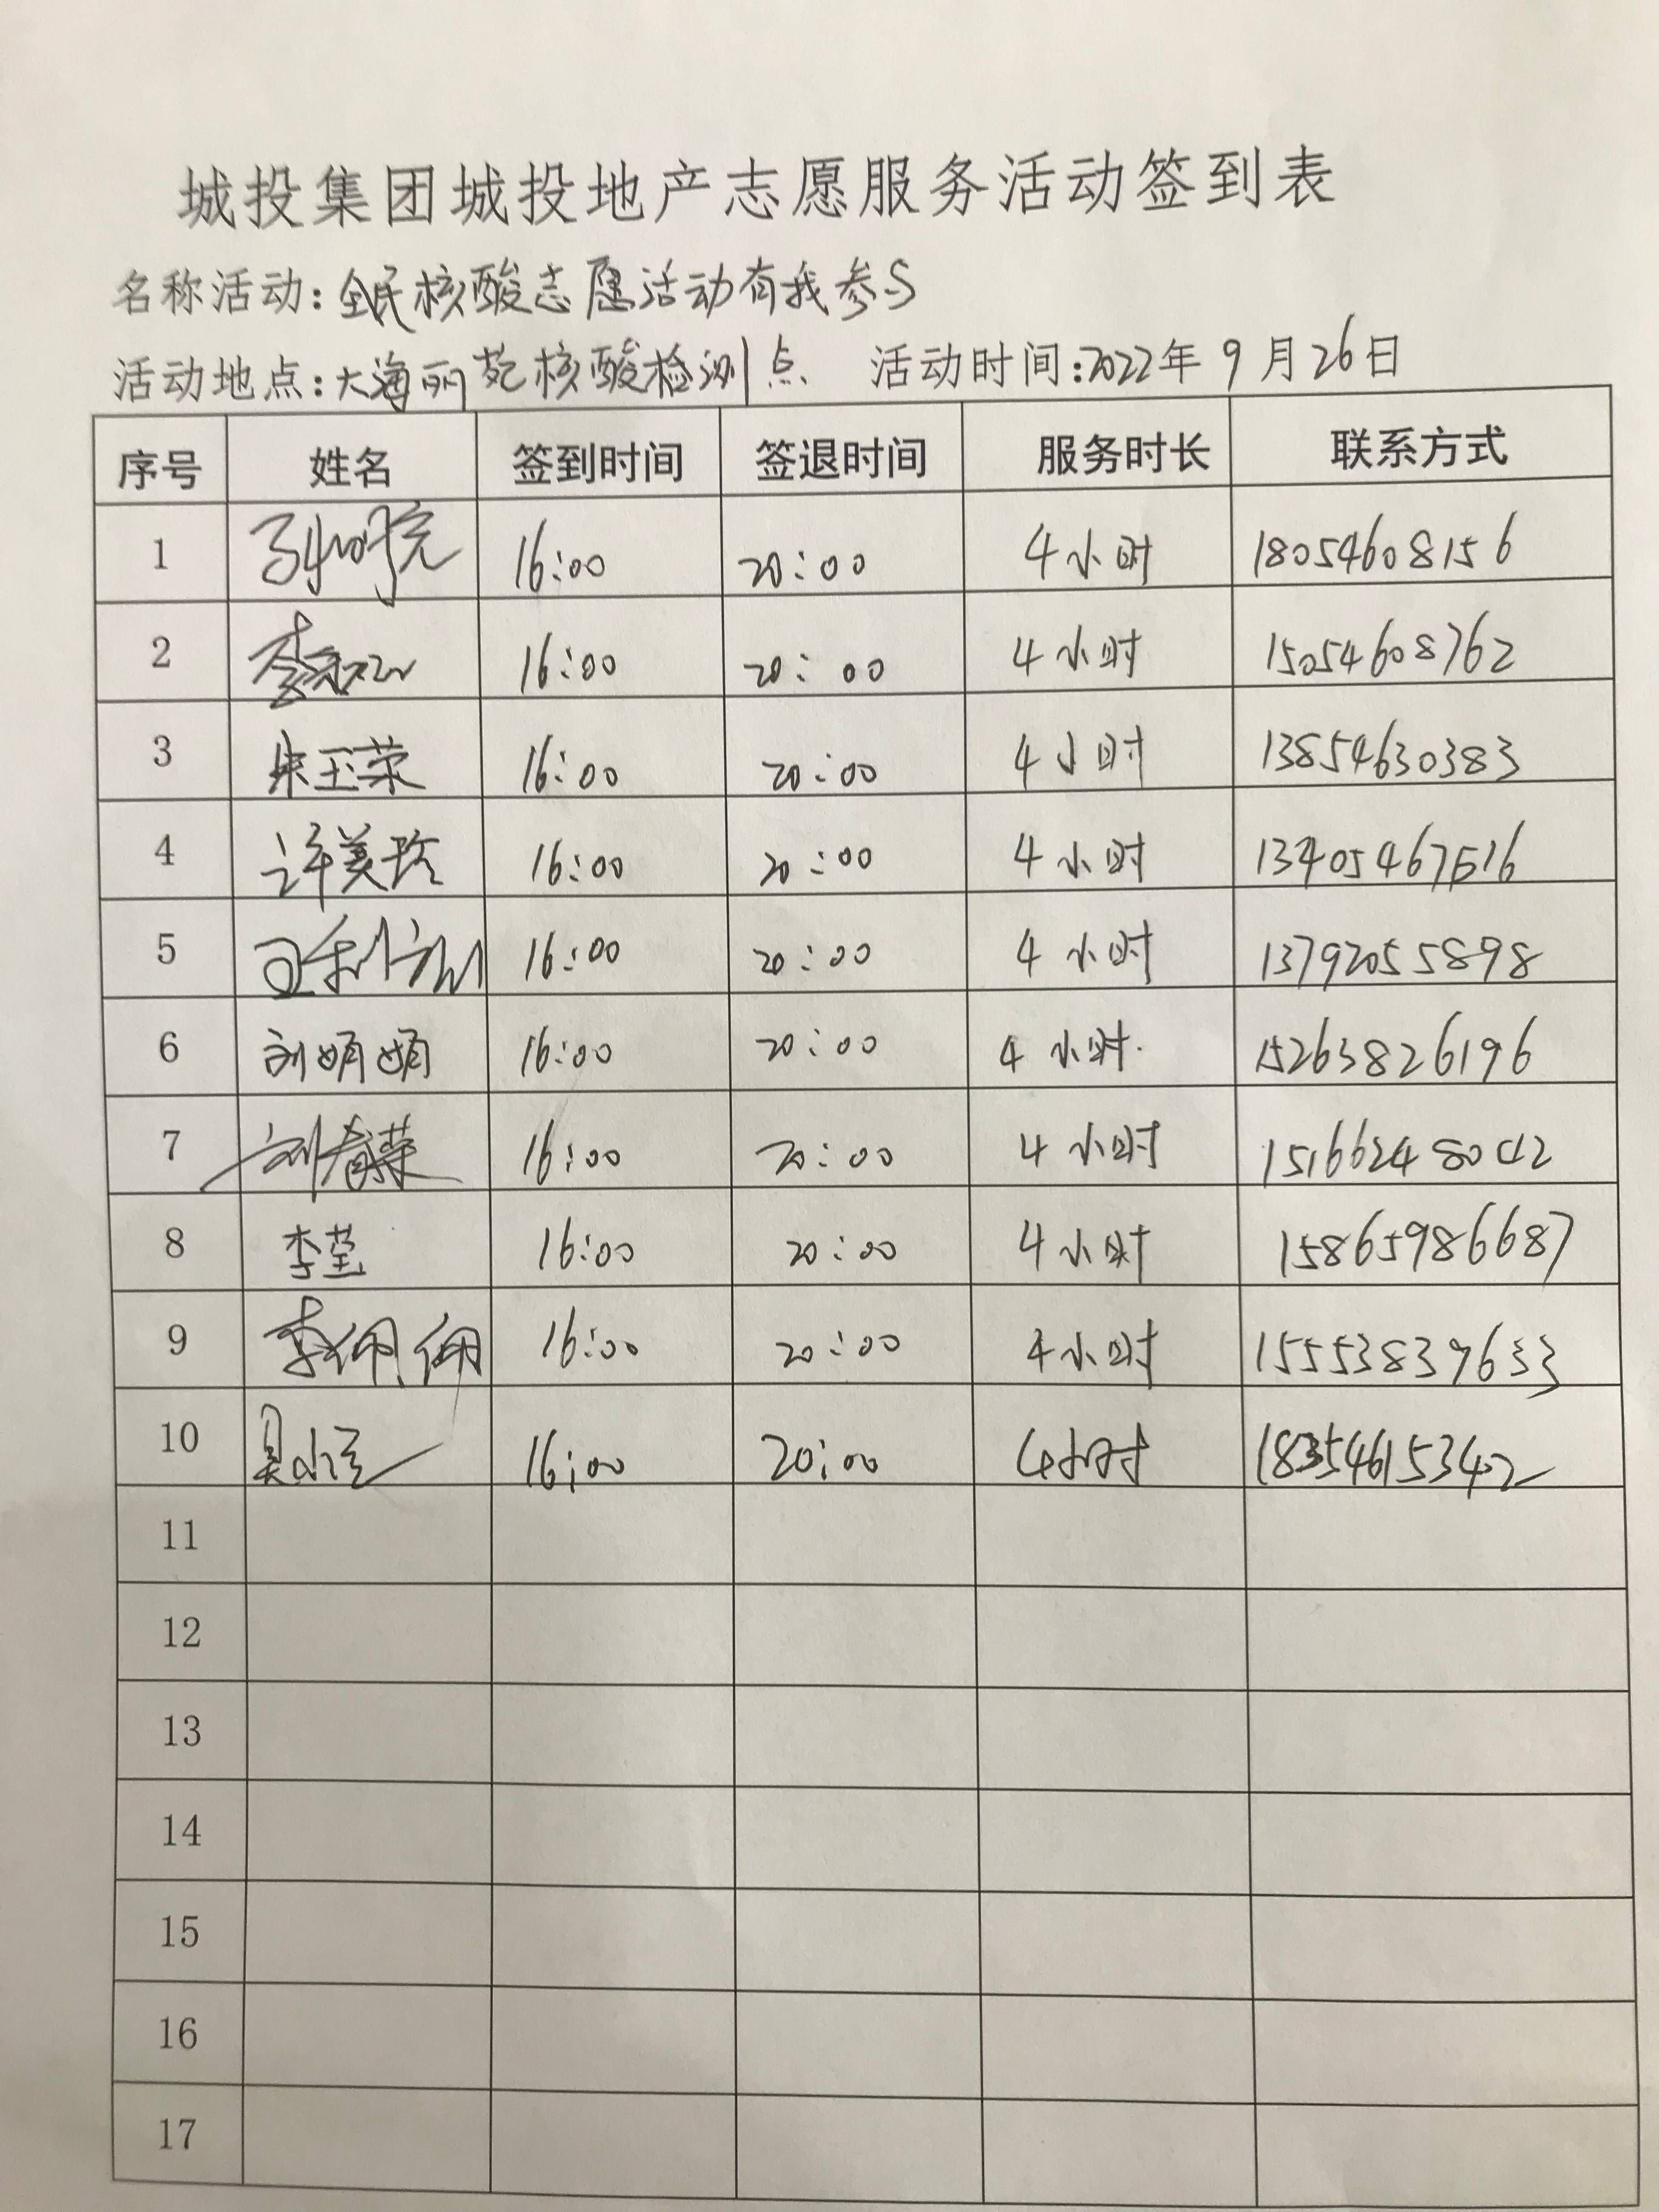 城投集团城投地产志愿服务活动签到表
名称活动：全民核酸志愿活动有我参与
活动地点：大海丽苑核酸检测点 活动时间：2022年9月26日
序号 姓名 签到时间 签退时间 服务时长 联系方式
1 16:00 20:00 4小时 18054608156
2 16:00 20:00 4小时 15054608762
3 朱玉荣 16:00 20:00 4小时 13854630383
4 许美玲 16:00 20:00 4小时 13405467516
5 16:00 20:00 4小时 13792055898
6 刘娟娟 16:00 20:00 4小时 15263826196
7 刘春荣 16:00 20:00 4小时 15166248042
8 李莹 16:00 20:00 4小时 15865986687
9 李佩佩 16:00 20:00 4小时 15553839633
10 16:00 20:00 4小时 18354615342
11
12
13
14
15
16
17